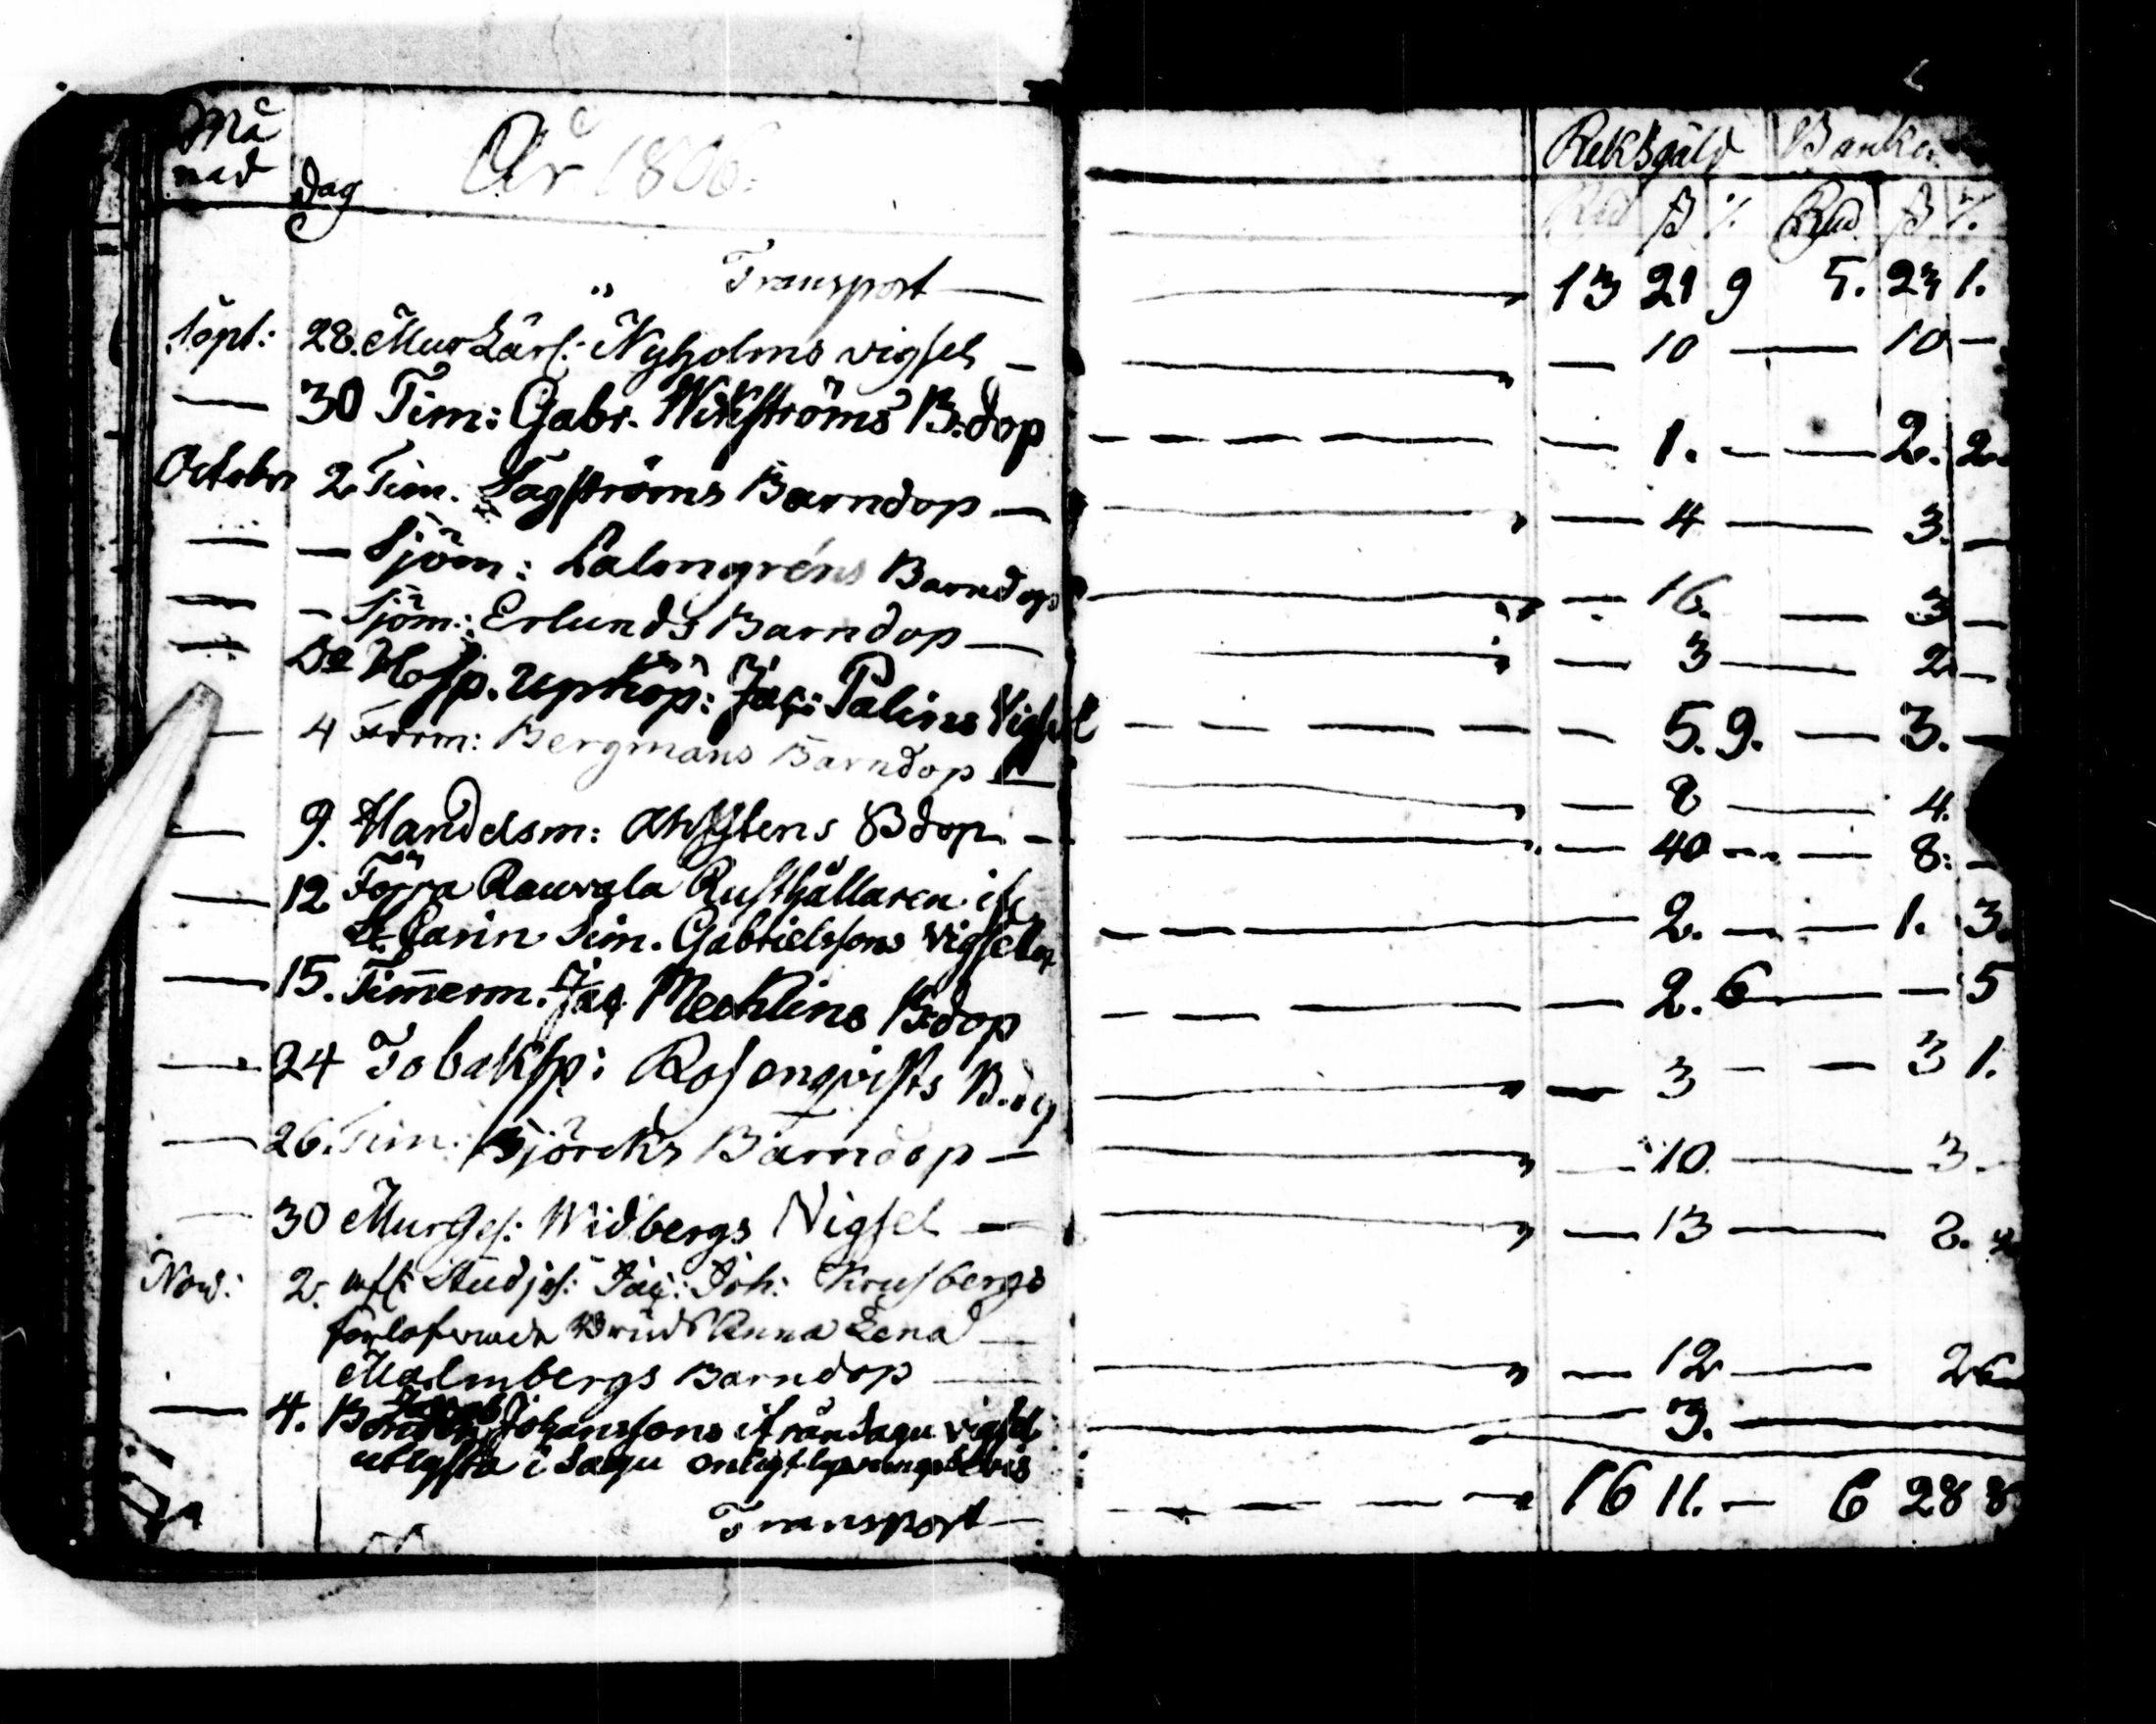 Må
nad dag År 1806. Riksgäld Banko.
Rd ß % Rd ß %
Transport — 13 21 9 5. 23 1.
Sept: 28. Murlärl: Nyholms vigsel — — 10 — 10 —
— 30 Tim: Gabr. Wikströms B:dop — 1. — — 2. 2.
Octobr 2. Tim. Fagströms Barndop — — 4 — 3. —
— — Sjöm: Lalmgréns Barndop — 16. — 3 —
— — Sjöm: Erlunds Barndop — — 3 — 2 —
— Do Hosp. Uprköp: Jac: Palins Vigsel — 5. 9. — 3. —
— 4 Form: Bergmans Barndop — — 8 — 4.
— 9. Handelsm: Bdop — — 40 — — 8: —
— 12 Förra Rauvala Rusthållaren
St. Carin Sim. Gabrielssons vigsel — 2. — — 1. 3.
— 15. Timerm. Jac Mechlins B:dop — 2. 6 — — 5
— 24 Tobaksp: Rosenqvists B.dop — 3 — — 3 1.
— 26. Tim: Björcks Barndop — — 10. — 3. —
— 30 MurGes: Widbergs Vigsel — — 13 — 2.
Nov: 2. Jac: Joh: Krusbergs
förlofwade Brud Anna Lena —
Malmbergs Barndop — — 12 — 2 6
— 4. Jacob Johanssons ifrån vigsel — 3. —
utlysta i Sagu enligt
Transport — 16 11. — 6 28 8